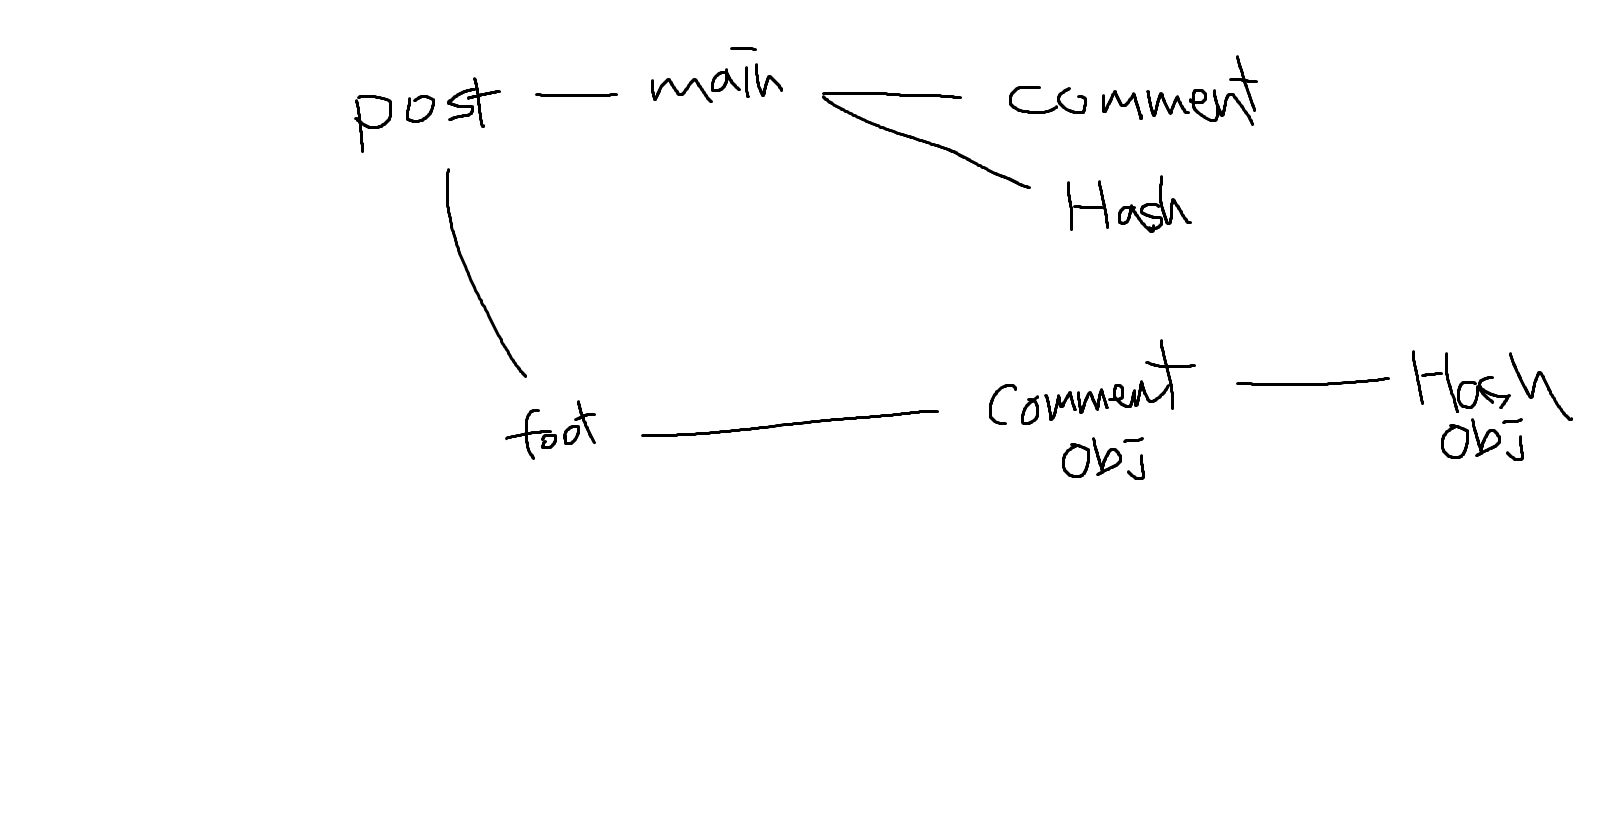 post
main
comment
Hash
foot
Comment
Obj
Hash
Obj